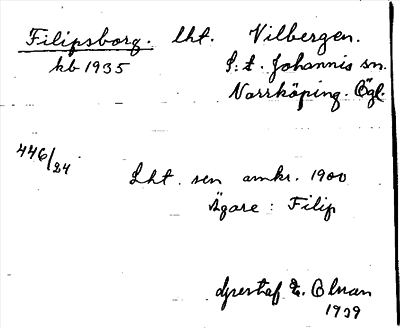 Filipsborg. lht. Vilbergen.
kb 1935 S:t. Johannis sn.
Norrköping. Ögl.
446/24
Lht. sen omkr. 1900
Ägare: Filip
E.
1939